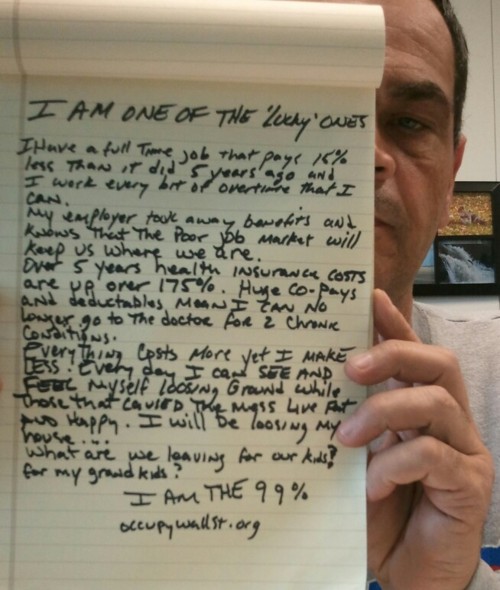 I AM ONE OF THE 'Lucky' ONES
I Have a full Time job that pays 15%
less than it did 5 years ago and
I work every bit of overtime that I
can.
My employer took away benefits and
knows that the poor job market will
keep us where we are.
Over 5 years health insurance costs
are up over 175%. Huge co-pays
and deductables mean I can no
longer go to the doctor for 2 chronic
conditions.
Everything costs more yet I make
less. Every day I can SEE AND
FEEL myself loosing ground while
those that caused the mess live fat
and happy. I will be loosing my
house...
what are we leaving for our kids?
for my grandkids?
I AM THE 99%
occupywallst.org